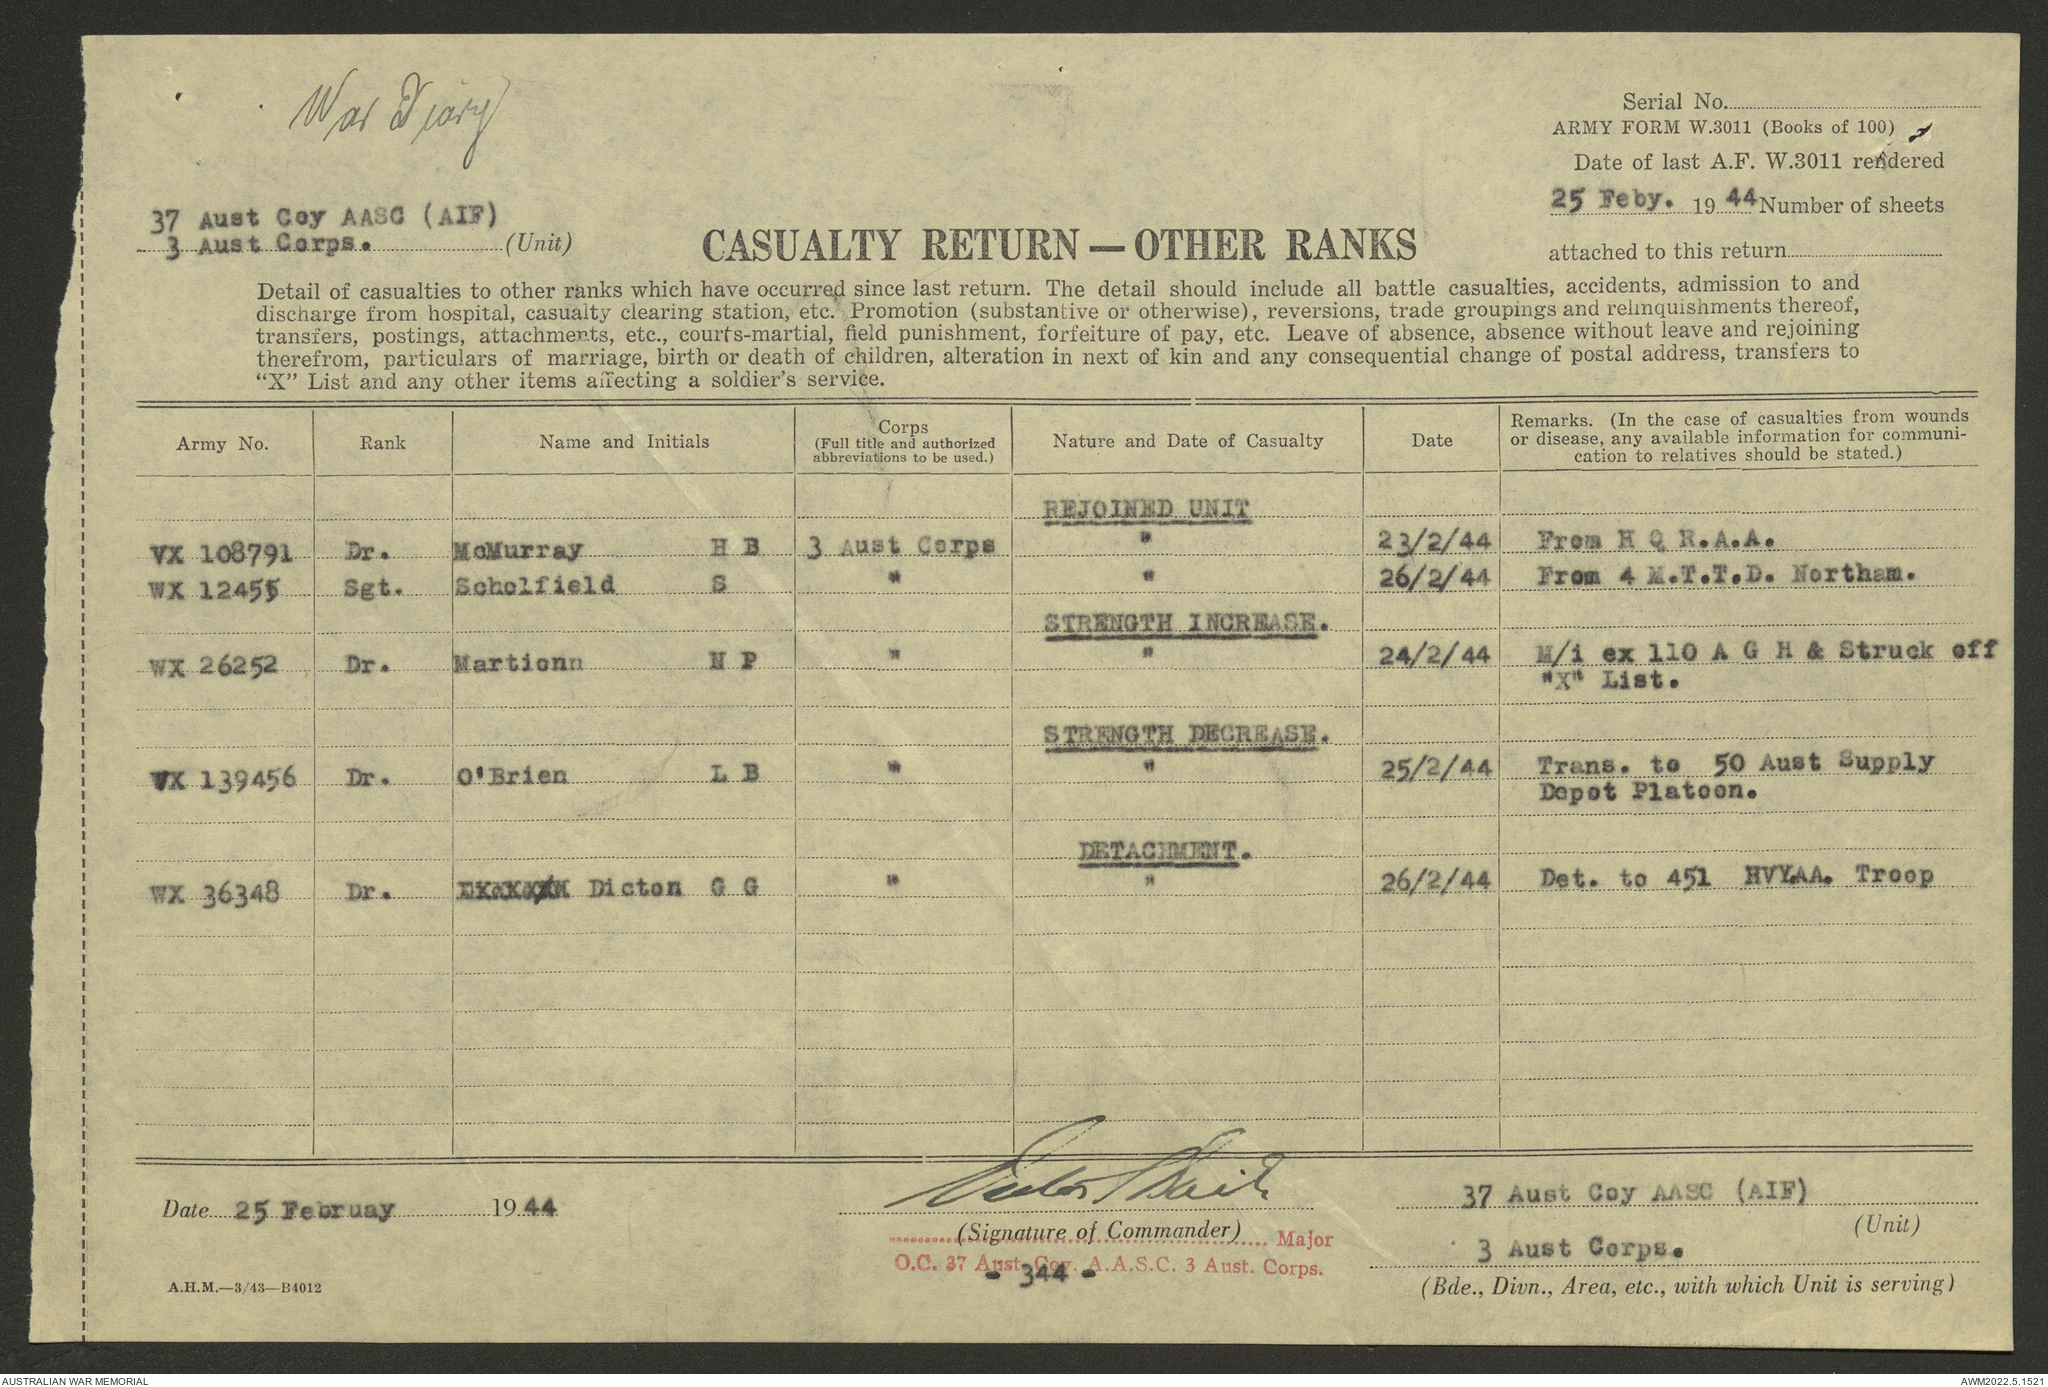 War Diary
Serial No.
ARMY FORM W.3011 (Books of 100)
Date of last A.F. W.3011 rendered
25 Feby. 1944 Number of sheets
attached to this return
37 Aust Coy AASC (AIF)
3 Aust Corps. (Unit)
CASUALTY RETURN — OTHER RANKS
Detail of casualties to other ranks which have occurred since last return. The detail should include all battle casualties, accidents, admission to and
discharge from hospital, casualty clearing station, etc. Promotion (substantive or otherwise), reversions, trade groupings and relinquishments thereof,
transfers, postings, attachments, etc., courts-martial, field punishment, forfeiture of pay, etc. Leave of absence, absence without leave and rejoining
therefrom, particulars of marriage, birth or death of children, alteration in next of kin and any consequential change of postal address, transfers to
“X” List and any other items affecting a soldier's service.
Army No. Rank Name and Initials Corps (Full title and authorized abbreviations to be used.) Nature and Date of Casualty Date Remarks. (In the case of casualties from wounds
or disease, any available information for communi-
cation to relatives should be stated.)
REJOINED UNIT
VX 108791 Dr. McMurray H B 3 Aust Corps " 23/2/44 From H Q R.A.A.
WX 12455 Sgt. Scholfield S " " 26/2/44 From 4 M.T.T.D. Northam.
STRENGTH INCREASE.
WX 26252 Dr. Martionn N P " " 24/2/44 M/i ex 110 A G H & Struck off
"X" List.
STRENGTH DECREASE.
VX 139456 Dr. O'Brien L B " " 25/2/44 Trans. to 50 Aust Supply
Depot Platoon.
DETACHMENT.
WX 36348 Dr. Dicton G G " " 26/2/44 Det. to 451 HVY.AA. Troop
Date 25 Februay 1944
(Signature of Commander)
Major
O.C. 37 Aust. Coy. A.A.S.C. 3 Aust. Corps.
- 344 -
37 Aust Coy AASC (AIF)
(Unit)
3 Aust Corps.
(Bde., Divn., Area, etc., with which Unit is serving)
A.H.M.—3/43—B4012
AUSTRALIAN WAR MEMORIAL
AWM2022.5.1521